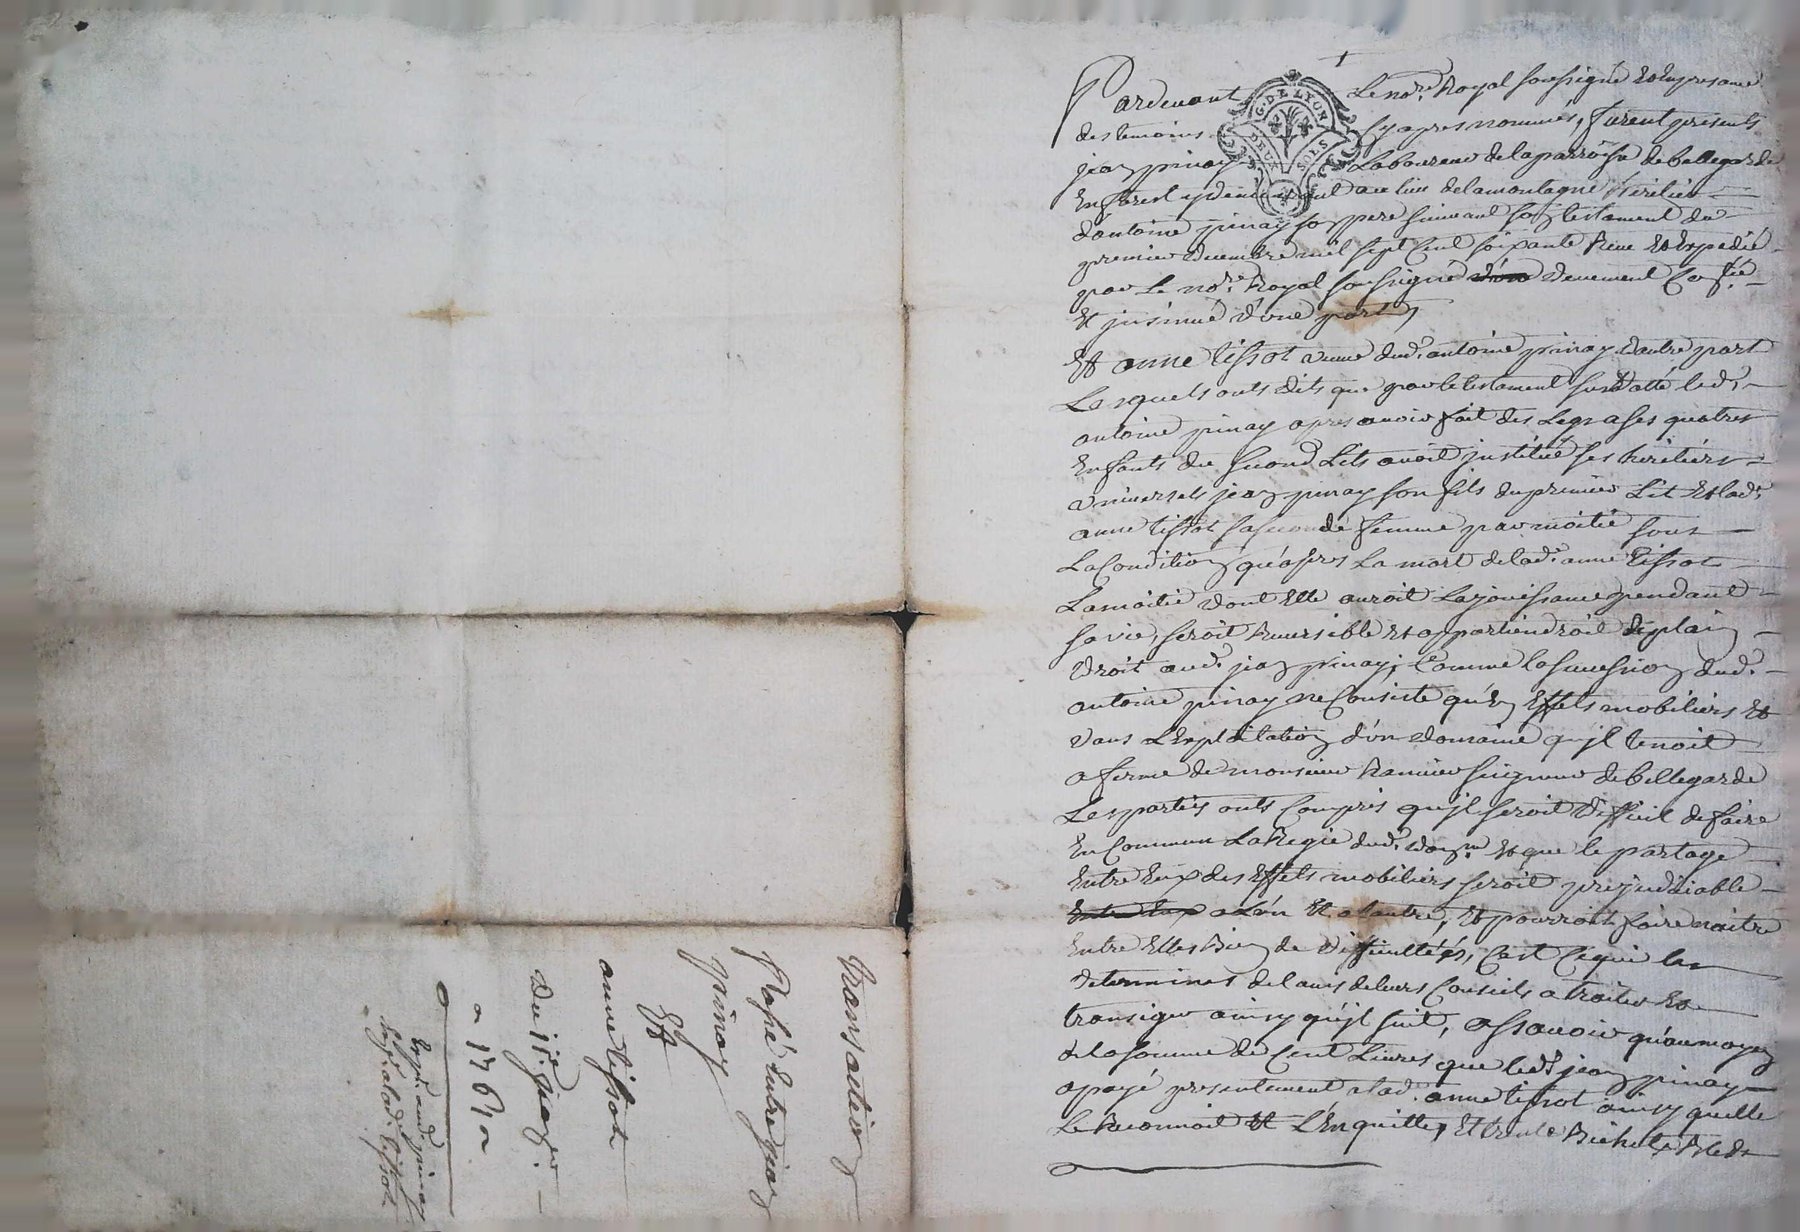 Pardevant Le no.re Royal soussigné Et En presance
des temoins Cy apres nommés, furent presents
jean pinay Laboureur de la parroisse de bellegarde
En forest y demeurant au lieu de la montagne heritier
d'antoine pinay son pere suivant son testament du
premier decembre mil sept Cent soixante Et Expedié
par Le no.re Royal soussigné d'un duement Con.lé
Et jnsinué d'une part,
Et anne tissot veuve dud.t antoine pinay d'autre part
Lesquels onts dits que par le testament susdatté led.t
antoine pinay apres avoir fait des Legs a ses quatres
Enfants du second Lits avoit jnstitué ses heritiers
universels jean pinay son fils du premier Lit Et lad.e
anne tissot sa seconde femme par moitié sous
La Condition qu'apres La mort de lad.e anne tissot
La moitié dont Elle auroit La jouissance pendant
sa vie, seroit reversible Et appartiendroit de plain
droit aud.t jean pinay; Comme la succession dud.t
antoine pinay ne Consiste qu'En Effets mobiliers Et
dans L'Exploitation d'un domaine qu'jl tenoit
a ferme de monsieur seigneur de bellegarde
Les parties onts Compris qu'jl seroit difficil de faire
En Commun La Regie dud.t dom.ne Et que le partage
Entre Eux des Effets mobiliers seroit prejudiciable
Entre Eux a L'un Et a L'autre, Et pourroit faire naitre
Entre Elles Bien de difficultés, C'est Ce qui les
determines de l'avis de leurs Conseils a traiter Et
transiger ainsy qu'jl suit, assavoir qu'au moyen
de la somme de Cent Livres que led.t jean pinay
a payé presentement a lad.e anne tissot ainsy qu'elle
Le Reconnoit Et L'En quitte, Et trente Bichets Bled
Transaction
Passé Entre jean
pinay
Et
anne tissot
Du 11.e Janv.er
a 1762
Exp. aud. pinay
Et a lad. tissot